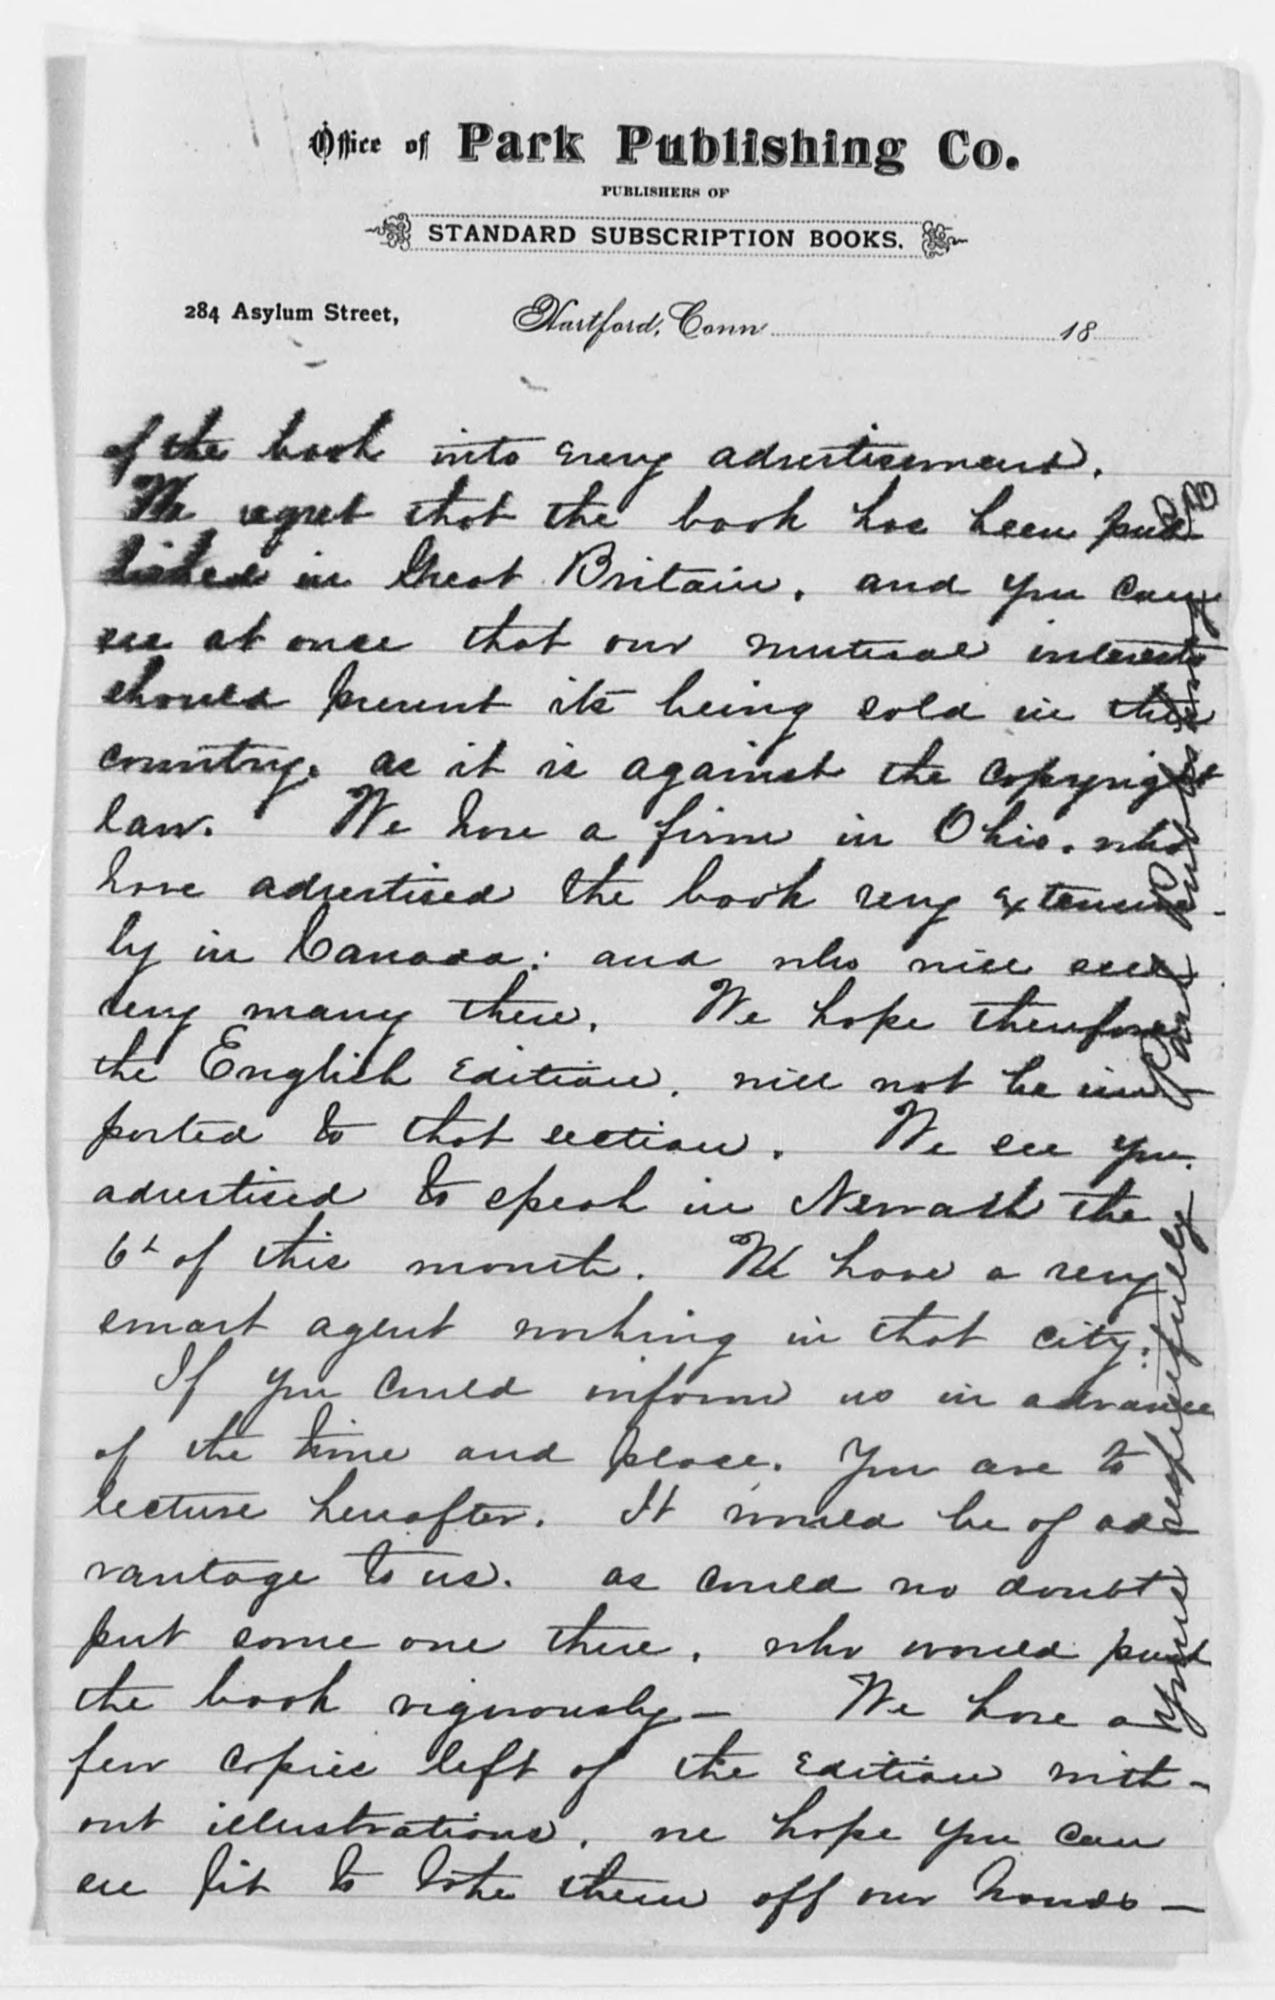 Office of Park Publishing Co.
PUBLISHERS OF
STANDARD SUBSCRIPTION BOOKS.
284 Asylum Street, Hartford, Conn 18
of the book into every advertisement.
We regret that the book has been pub-
lished in Great Britain, and you can
see at once that our mutual interests
should prevent its being sold in this
country, as it is against the copyright
law. We have a firm in Ohio, who
have advertised the book very extensive-
ly in Canada: and who will sell
very many there. We hope therefore
the English Edition, will not be im
ported to that section. We see you
advertised to speak in Newark the
6th of this month. We have a very
smart agent working in that city:
If you could inform us in advance
of the time and place. You are to
lecture hereafter. It would be of ad-
vantage to us. as could no doubt
put some one there, who would push
the book vigorously— We have a
few copies left of the Edition with-
out illustrations, we hope you can
see fit to take them off our hands—
Yours respectfully Park Publishing Co